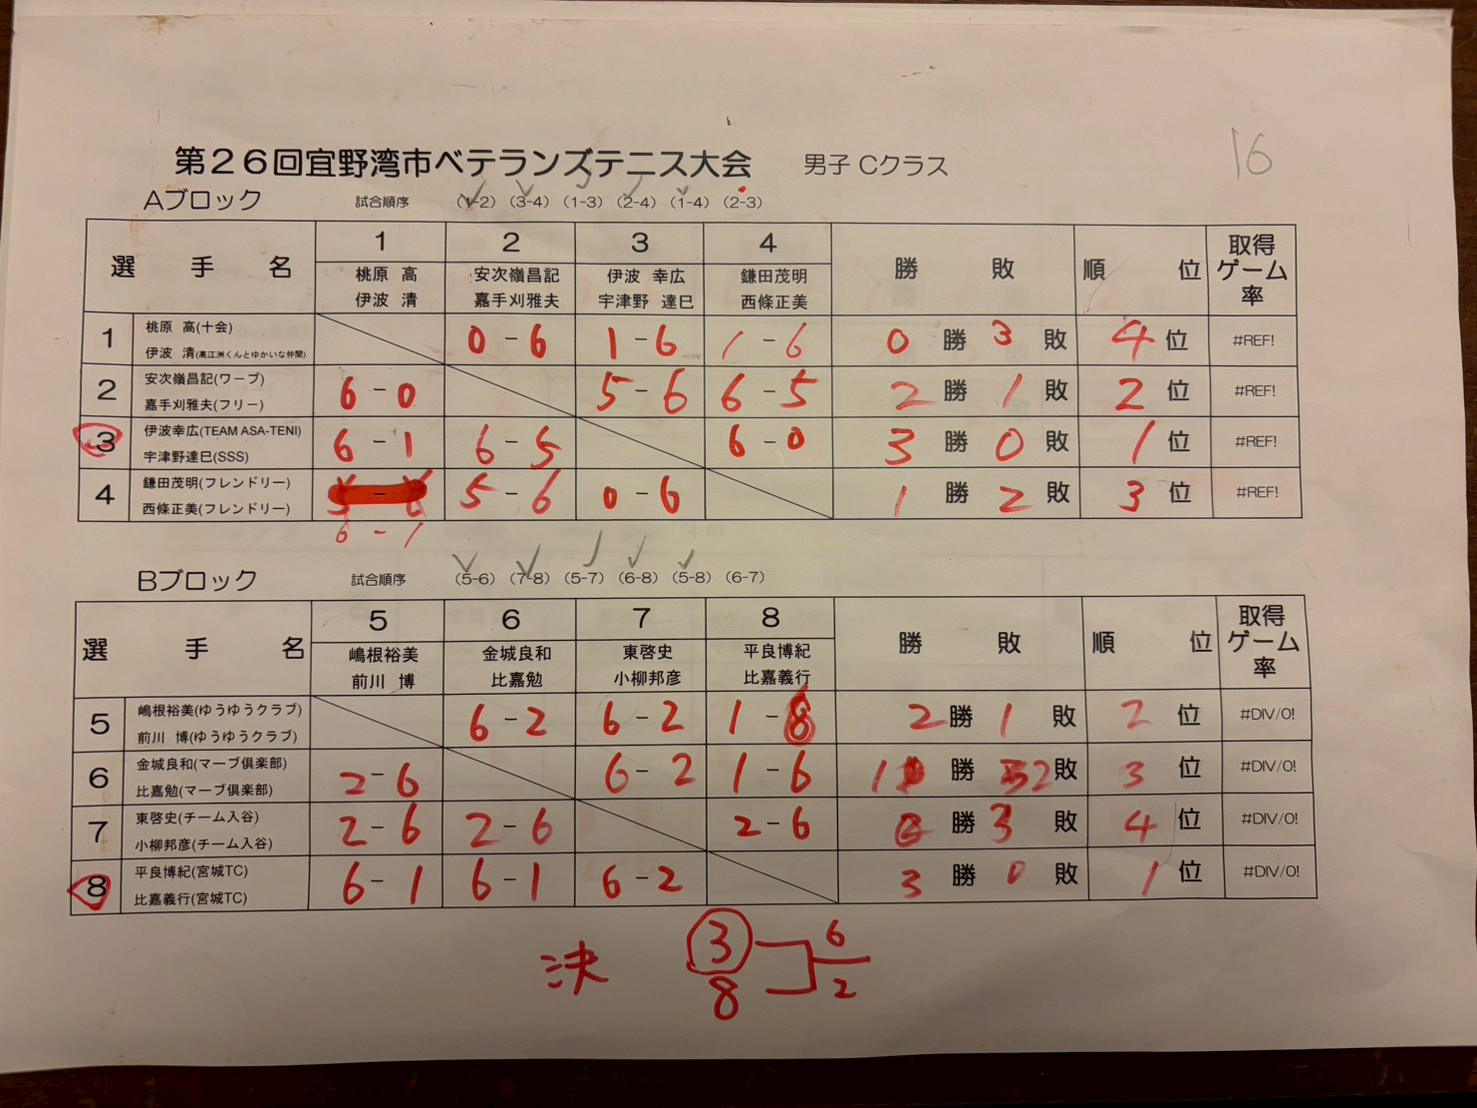 16
第26回宜野湾市ベテランズテニス大会 男子 Cクラス
Aブロック 試合順序 (1-2) (3-4) (1-3) (2-4) (1-4) (2-3)
選手名 1 2 3 4 勝敗 順位 取得ゲーム率
桃原 高 安次嶺昌記 伊波 幸広 鎌田茂明
伊波 清 嘉手刈雅夫 宇津野 達巳 西條正美
1 桃原 高(十会) 0-6 1-6 1-6 0勝3敗 4位 #REF!
伊波 清(高江洲くんとゆかいな仲間)
2 安次嶺昌記(ワープ) 6-0 5-6 6-5 2勝1敗 2位 #REF!
嘉手刈雅夫(フリー)
3 伊波幸広(TEAM ASA-TENI) 6-1 6-5 6-0 3勝0敗 1位 #REF!
宇津野達巳(SSS)
4 鎌田茂明(フレンドリー) 5-6 0-6 1勝2敗 3位 #REF!
西條正美(フレンドリー)
6-1
Bブロック 試合順序 (5-6) (7-8) (5-7) (6-8) (5-8) (6-7)
選手名 5 6 7 8 勝敗 順位 取得ゲーム率
嶋根裕美 金城良和 東啓史 平良博紀
前川 博 比嘉勉 小柳邦彦 比嘉義行
5 嶋根裕美(ゆうゆうクラブ) 6-2 6-2 1- 2勝1敗 2位 #DIV/0!
前川 博(ゆうゆうクラブ)
6 金城良和(マーブ倶楽部) 2-6 6-2 1-6 1勝2敗 3位 #DIV/0!
比嘉勉(マーブ倶楽部)
7 東啓史(チーム入谷) 2-6 2-6 2-6 0勝3敗 4位 #DIV/0!
小柳邦彦(チーム入谷)
8 平良博紀(宮城TC) 6-1 6-1 6-2 3勝0敗 1位 #DIV/0!
比嘉義行(宮城TC)
決 3 6
8 2